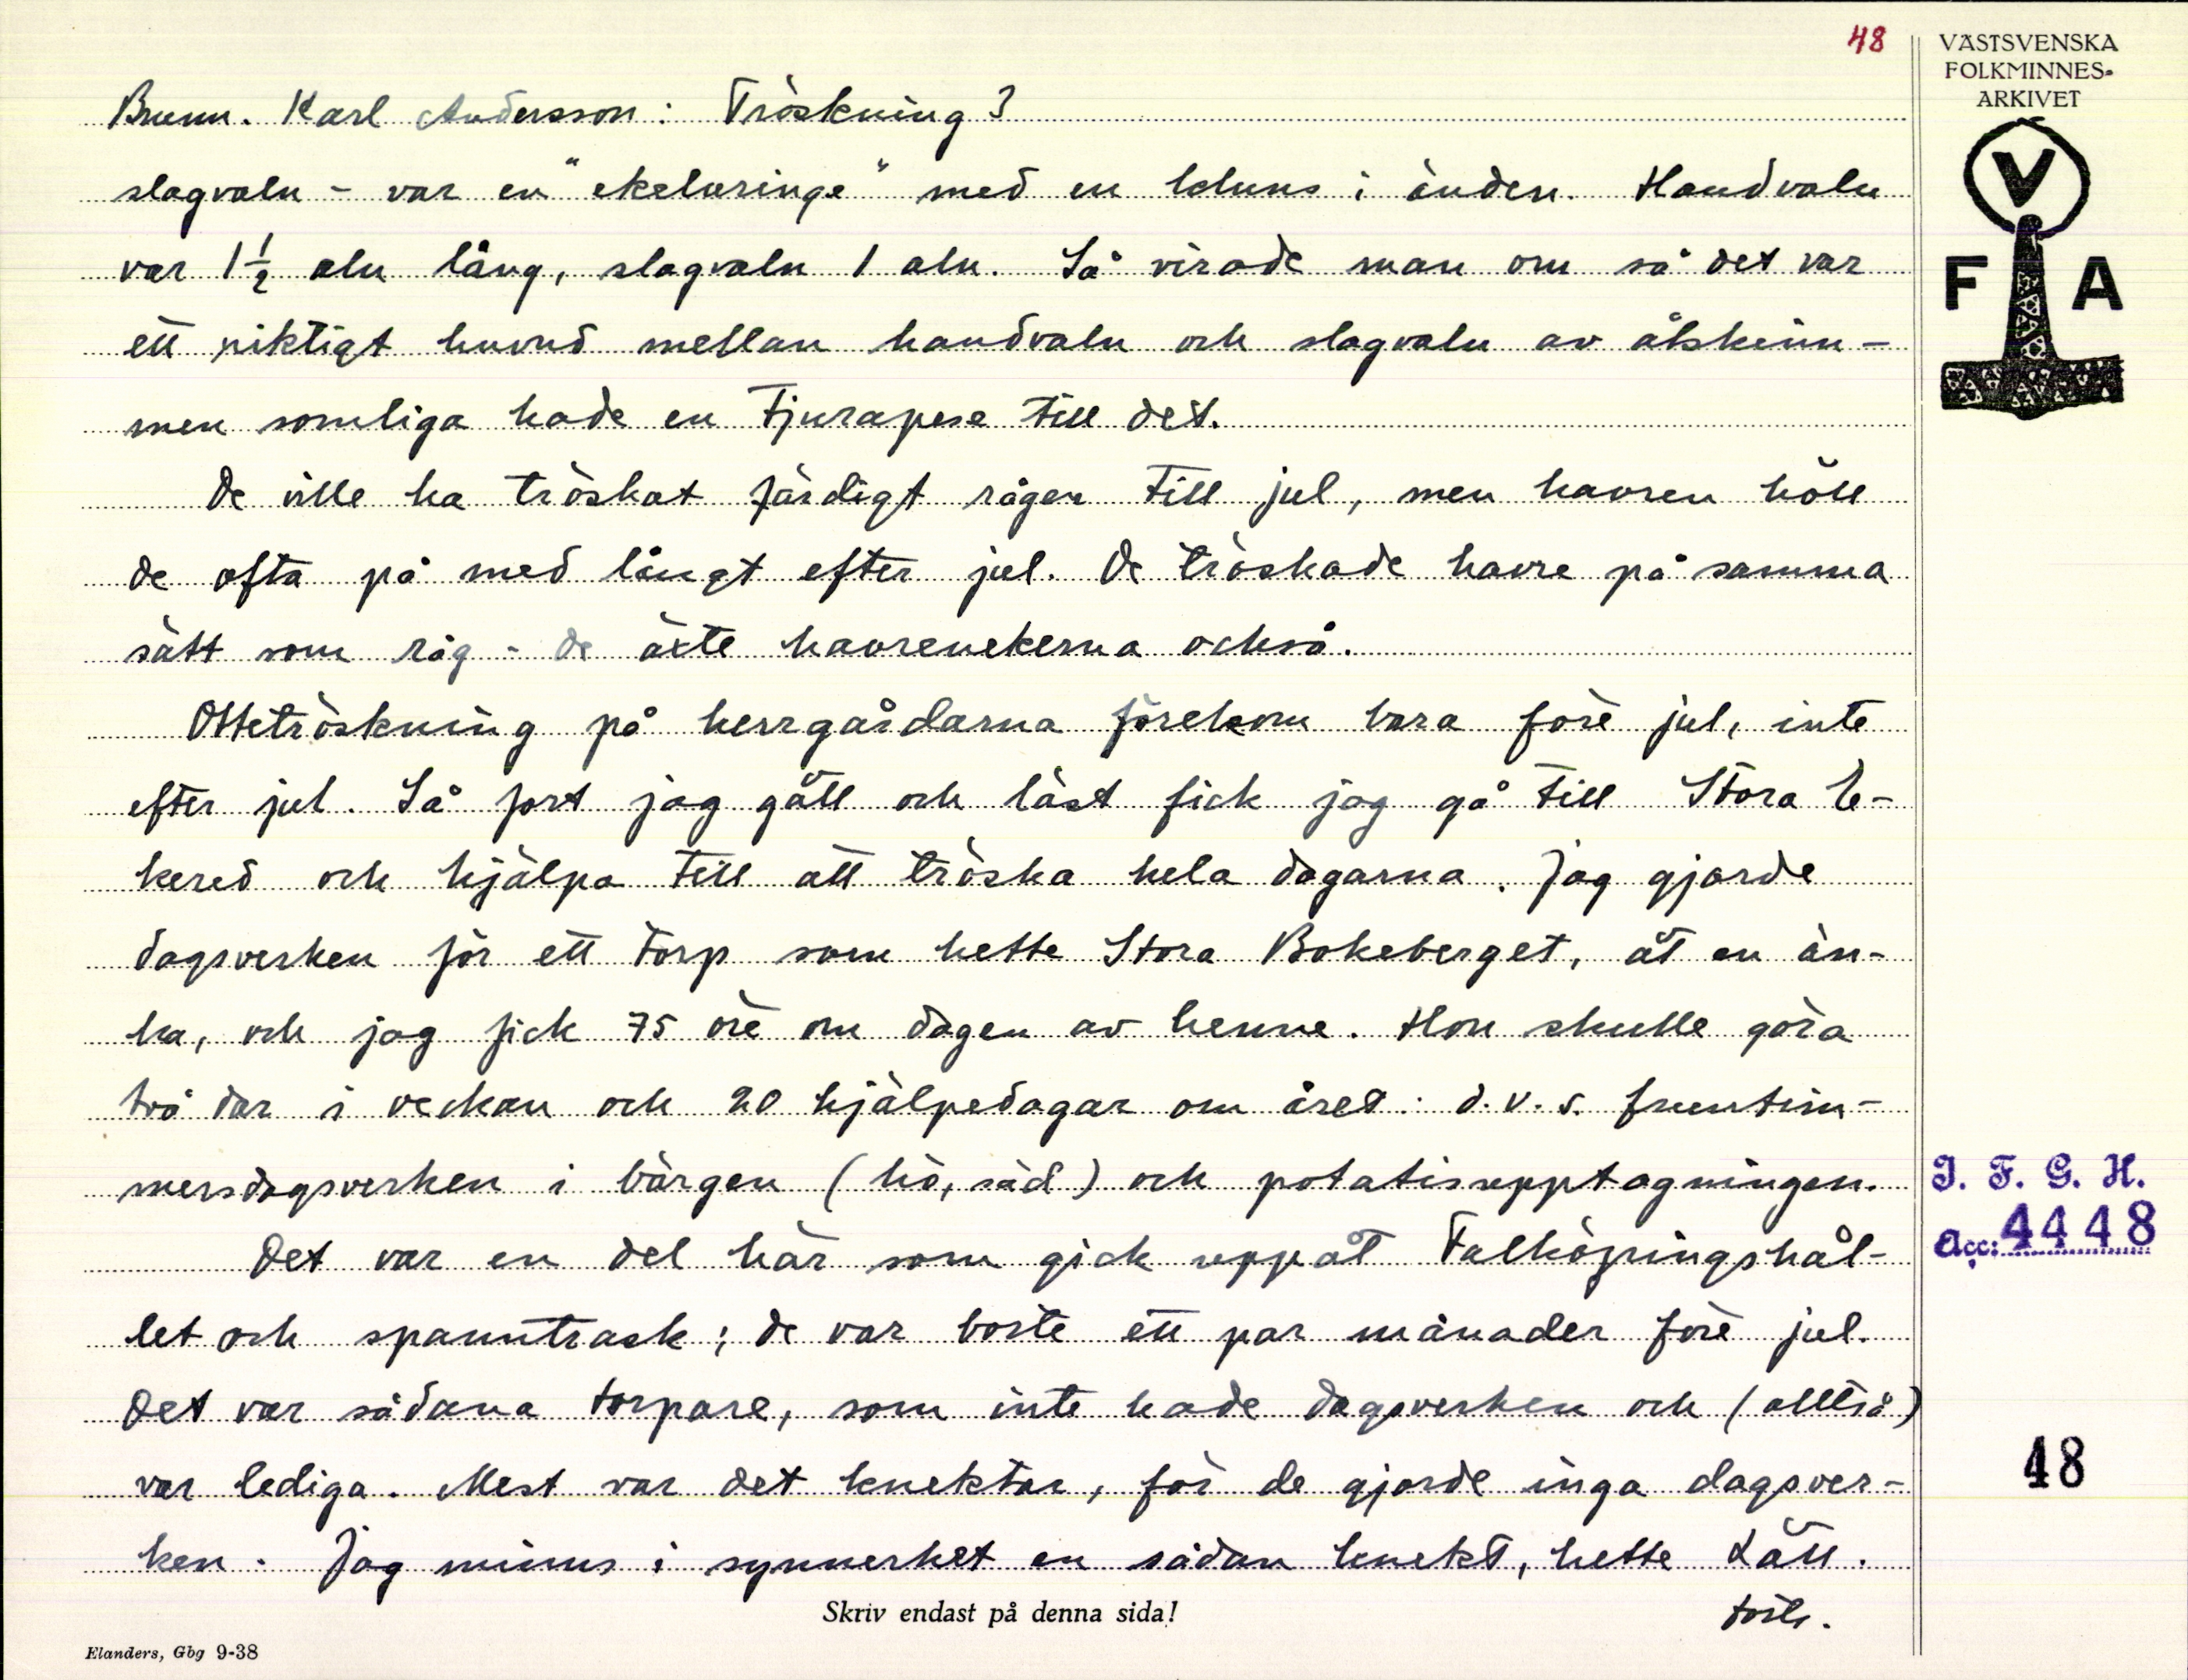 48
VÄSTSVENSKA
FOLKMINNES-
ARKIVET
Brunn. Karl Andersson: Tröskning 3
slagvaln - var en "ekelöringe" med en klums i änden. Handvaln
var 1½ aln lång, slagvaln 1 aln. Så virade man om så det var
ett riktigt huvud mellan handvaln och slagvaln av ålskinn -
men somliga hade en tjurapese till det.
De ville ha tröskat färdigt rågen till jul, men havren höll
de ofta på med långt efter jul. De tröskade havre på samma
sätt som råg - de äxte havrenekerna också.
Ottetröskning på herrgårdarna förekom bara före jul, inte
efter jul. Så fort jag gått och läst fick jag gå till Stora
kered och hjälpa till att tröska hela dagarna. Jag gjorde
dagsverken för ett torp som hette Stora Bokeberget, åt en än-
ka, och jag fick 75 öre om dagen av henne. Hon skulle göra
två dar i veckan och 20 hjälpedagar om året: d.v.s. fruntim-
mersdagsverken i bärgen (hö, säd) och potatisupptagningen.
Det var en del här som gick uppåt Falköpingshål-
let och spanntrask; de var borte ett par månader före jul.
Det var sådana torpare, som inte hade dagsverken och (alltså)
var lediga. Mest var det knektar, för de gjorde inga dagsver-
ken. Jag minns i synnerhet en sådan knekt, hette Lätt.
forts.
Skriv endast på denna sida!
Elanders, Gbg 9-38
V
F A
I. F. G. H.
Acc: 4448
48